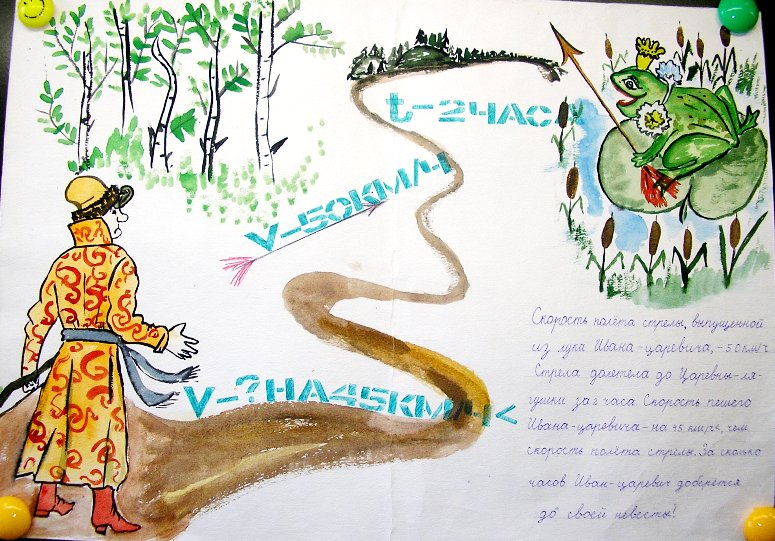 t-2ЧАСА
V-50КМ/Ч
V-?НА45КМ/Ч<
Скорость полёта стрелы, выпущенной
из лука Ивана-царевича, - 50 км/ч
Стрела долетела до Царевны-ля-
гушки за 2 часа. Скорость пешего
Ивана-царевича - на 45 км/ч, чем
скорость полёта стрелы. За сколько
часов Иван-царевич доберётся
до своей невесты?